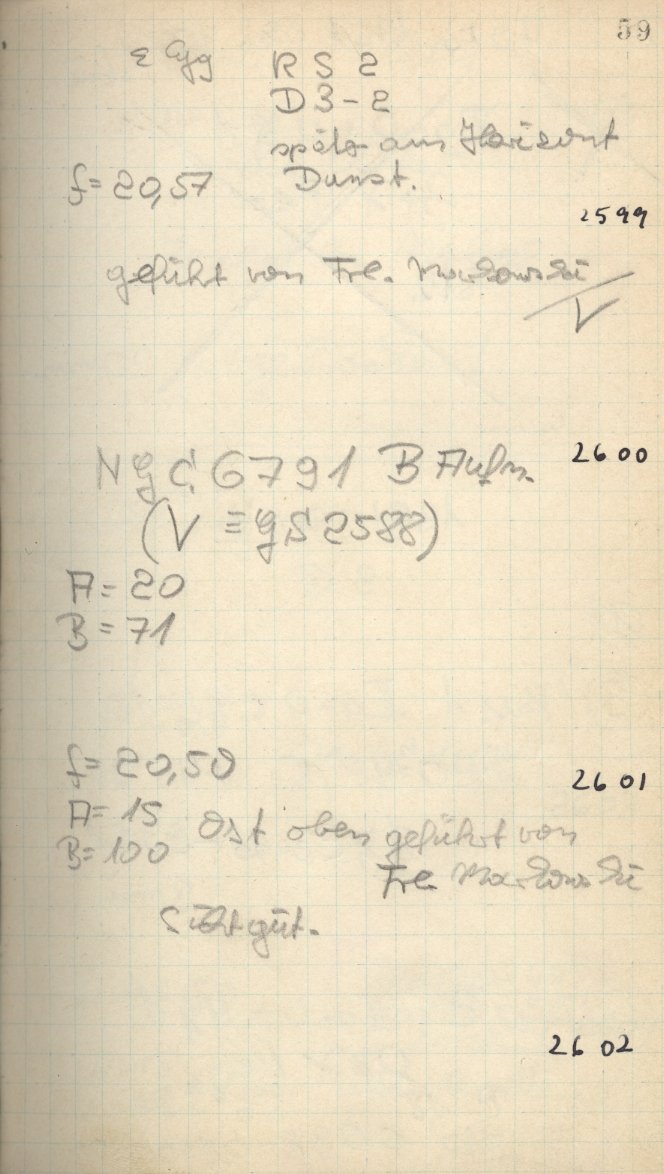 59
ε Cyg R S 2
D 3-2
später am Horizont
f = 20,57 Dunst.
2599
geführt von Frl. Markowski
V
2600
NGC 6791 B Aufn.
(V ≡ GS 2588)
A = 20
B = 71
f = 20,50
2601
A = 15 Ost oben geführt von
B = 100
Frl. Markowski
Sicht gut.
2602